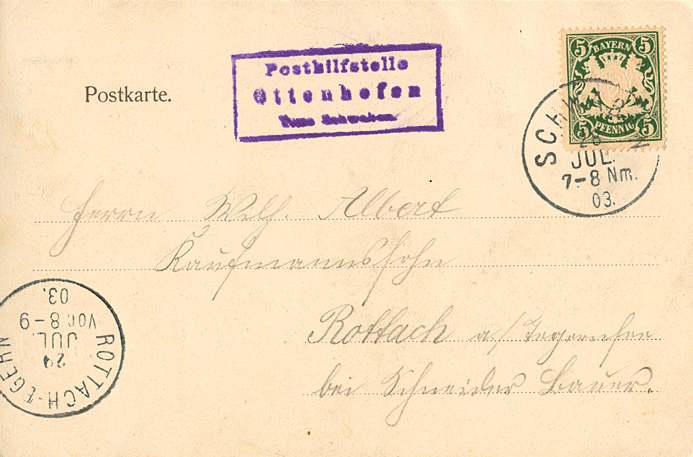 Posthilfstelle
Ottenhofen
Taxe Schwaben.
Postkarte.
5 BAYERN 5
5 PFENNIG 5
SCHWABEN
28
JUL.
7-8 Nm.
03.
Herrn Wilh. Albert
Kaufmannssohn
Rottach a/Tegernsee
bei Schneider Bauer.
ROTTACH-EGERN
29
JUL.
Vor. 8-9
03.